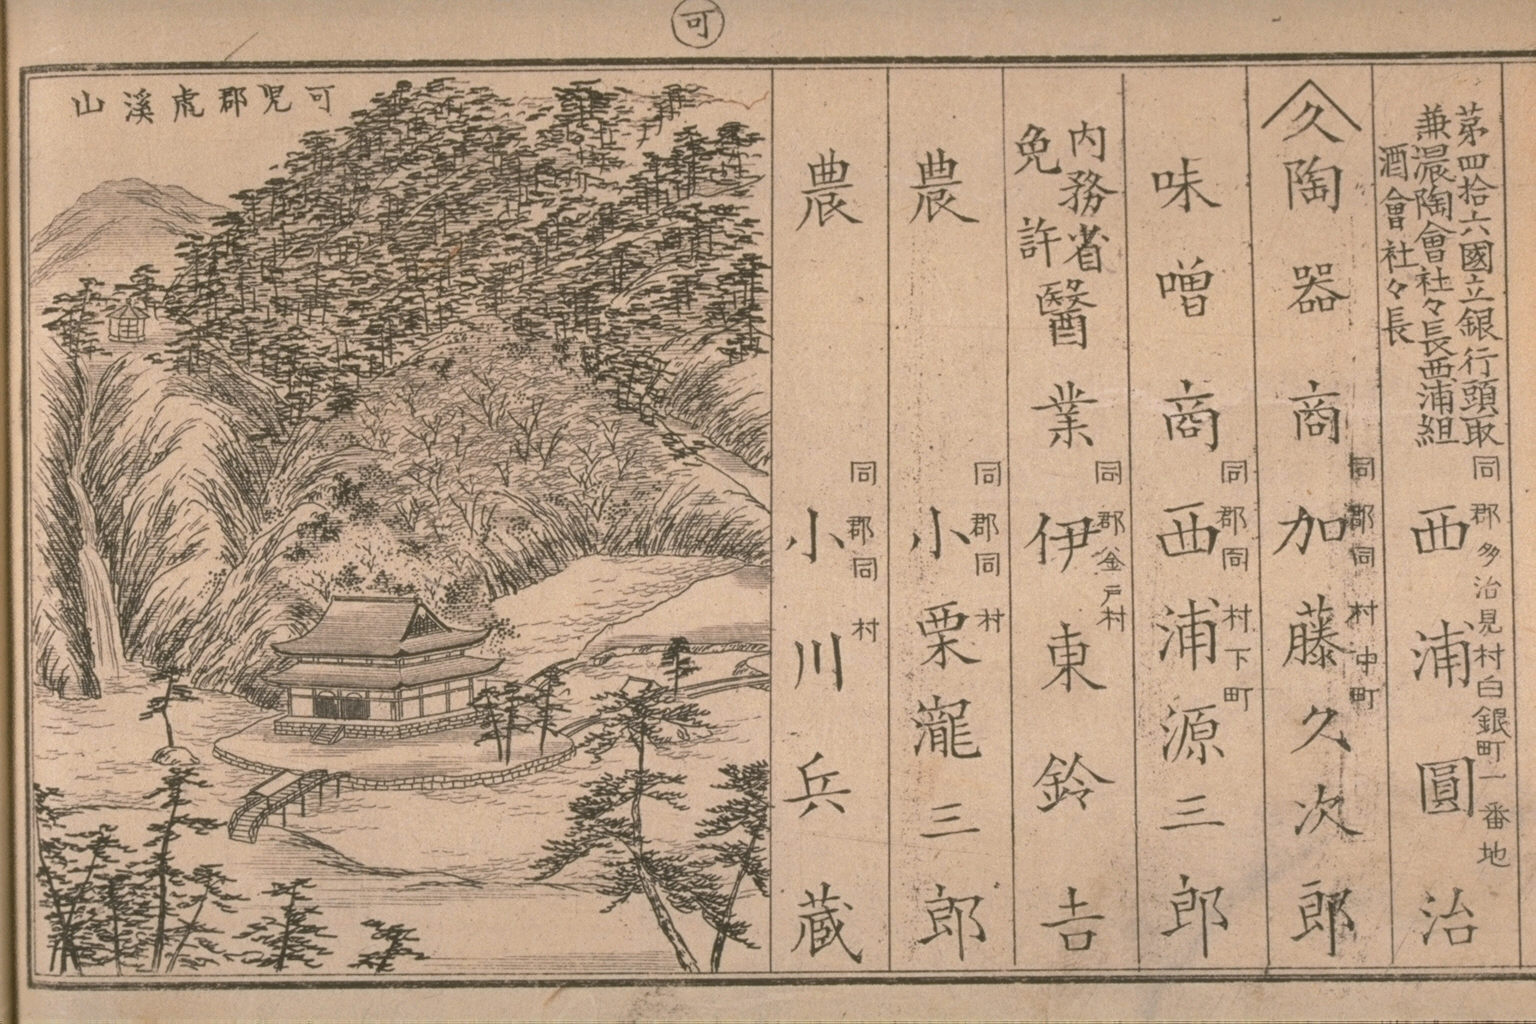 可
第四拾六國立銀行頭取
兼濃陶會社々長西浦組
酒會社々長
同郡多治見村白銀町一番地
西浦圓治
久
陶器商
同郡同村中町
加藤久次郎
味噌商
同郡同村下町
西浦源三郎
内務省
免許
醫業
同郡金戸村
伊東鈴吉
農
同郡同村
小栗瀧三郎
農
同郡同村
小川兵蔵
可児郡虎溪山